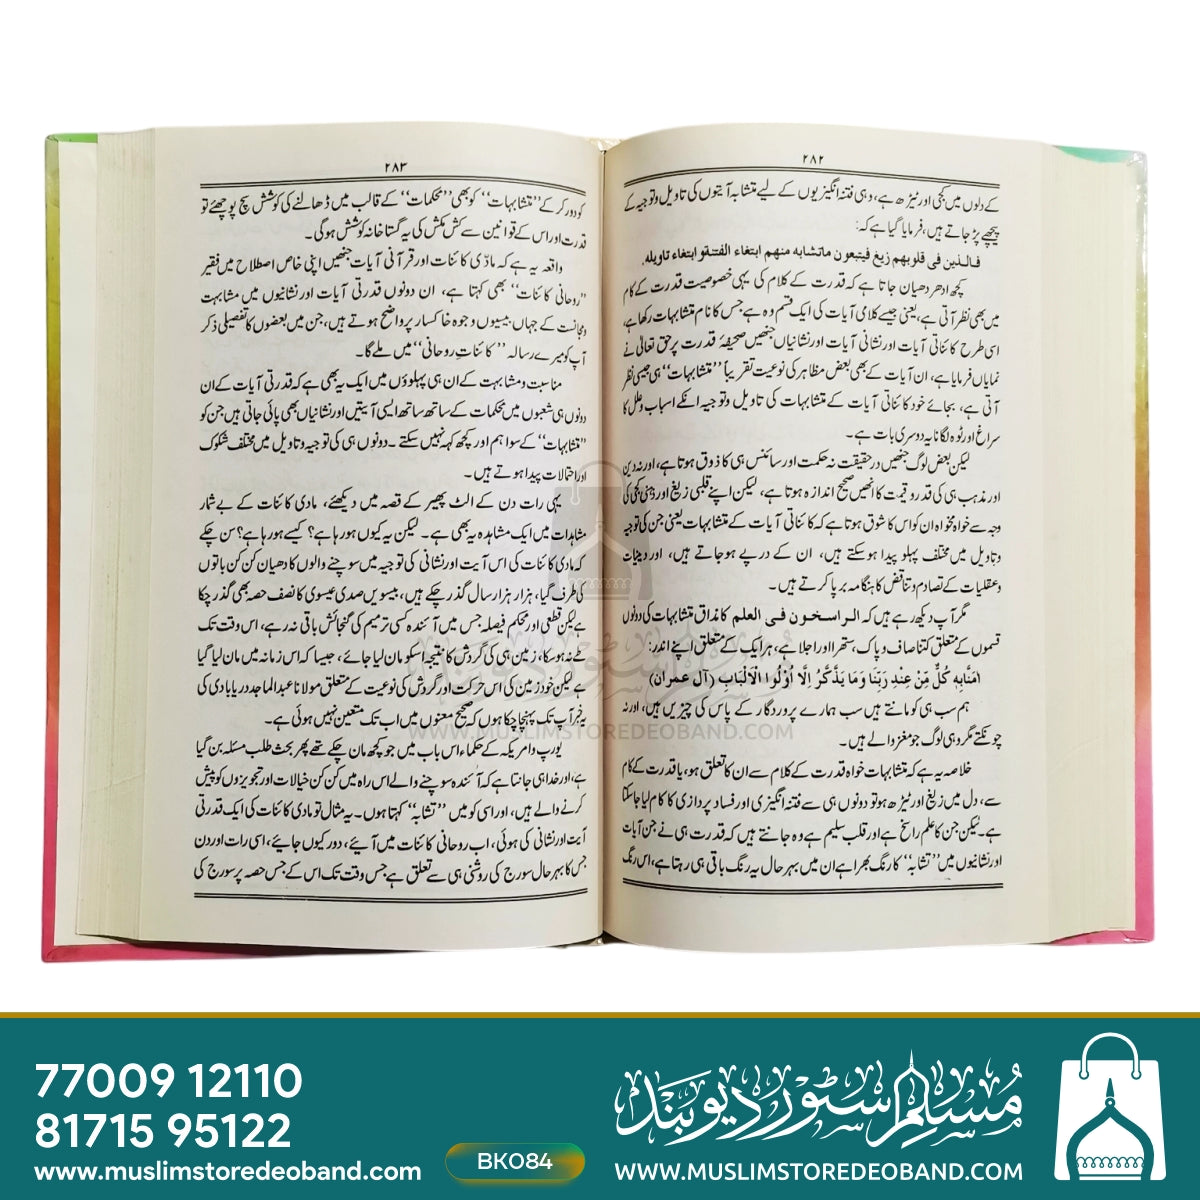 ۲۸۲
کے دلوں میں کجی اور ٹیڑھ ہے، وہی فتنہ انگیزیوں کے لیے متشابہ آیتوں کی تاویل وتوجیہ کے
پیچھے پڑ جاتے ہیں، فرمایا گیا ہے کہ:
فالذین فی قلوبهم زیغ فیتبعون ماتشابه منهم ابتغاء الفتنةو ابتغاء تاویله.
کچھ ادھر دھیان جاتا ہے کہ قدرت کے کلام کی یہی خصوصیت قدرت کے کام
میں بھی نظر آتی ہے، یعنی جیسے کلامی آیات کی ایک قسم وہ ہے جس کا نام متشابہات رکھا ہے،
اسی طرح کائناتی آیات اور نشانی آیات اور نشانیاں جنھیں صحیفۂ قدرت پر حق تعالیٰ نے
نمایاں فرمایا ہے، ان آیات کے بھی بعض مظاہر کی نوعیت تقریباً ’’متشابہات‘‘ ہی جیسی نظر
آتی ہے، بجائے خود کائناتی آیات کے متشابہات کی تاویل وتوجیہ انکے اسباب وعلل کا
سراغ اور ٹوہ لگانا یہ دوسری بات ہے۔
لیکن بعض لوگ جنھیں درحقیقت نہ حکمت اور سائنس ہی کا ذوق ہوتا ہے، اور نہ دین
اور مذہب ہی کی قدر و قیمت کا انھیں صحیح اندازہ ہوتا ہے، لیکن اپنے قلبی زیغ اور ذہنی کجی کی
وجہ سے خواہ مخواہ ان کو اس کا شوق ہوتا ہے کہ کائناتی آیات کے متشابہات یعنی جن کی توجیہ
وتاویل میں مختلف پہلو پیدا ہوسکتے ہیں، ان کے درپے ہوجاتے ہیں، اور دینیات
وعقلیات کے تصادم وتناقض کا ہنگامہ برپا کرتے ہیں۔
مگر آپ دیکھ رہے ہیں کہ الراسخون فی العلم کا مذاق متشابہات کی دونوں
قسموں کے متعلق کتنا صاف و پاک، ستھرا اور اجلا ہے، ہر ایک کے متعلق اپنے اندر:
اٰمَنَّابِهٖ كُلٌّ مِّنْ عِنْدِ رَبِّنَا وَمَا يَذَّكَّرُ اِلَّا اُوْلُوا الْاَلْبَابِ (آل عمران)
ہم سب ہی کو مانتے ہیں سب ہمارے پروردگار کے پاس کی چیزیں ہیں، اور نہ
چونکتے مگر وہی لوگ جو مغز والے ہیں۔
خلاصہ یہ ہے کہ متشابہات خواہ قدرت کے کلام سے ان کا تعلق ہو، یا قدرت کے کام
سے، دل میں زیغ اور ٹیڑھ ہو تو دونوں ہی سے فتنہ انگیزی اور فساد پردازی کا کام لیا جاسکتا
ہے۔ لیکن جن کا علم راسخ ہے اور قلب سلیم ہے وہ جانتے ہیں کہ قدرت ہی نے جن آیات
اور نشانیوں میں ’’تشابہ‘‘ کا رنگ بھرا ہے ان میں بہر حال یہ رنگ باقی ہی رہتا ہے، اس رنگ
۲۸۳
کو دور کر کے ’’متشابہات‘‘ کو بھی ’’محکمات‘‘ کے قالب میں ڈھالنے کی کوشش سچ پوچھئے تو
قدرت اور اس کے قوانین سے کش مکش کی یہ گستاخانہ کوشش ہوگی۔
واقعہ یہ ہے کہ مادّی کائنات اور قرآنی آیات جنھیں اپنی خاص اصطلاح میں فقیر
’’روحانی کائنات‘‘ بھی کہتا ہے، ان دونوں قدرتی آیات اور نشانیوں میں مشابہت
ومجانست کے جہاں بیسیوں وجوہ خاکسار پر واضح ہوتے ہیں، جن میں بعضوں کا تفصیلی ذکر
آپ کو میرے رسالہ ’’کائناتِ روحانی‘‘ میں ملے گا۔
مناسبت ومشابہت کے ان ہی پہلوؤں میں ایک یہ بھی ہے کہ قدرتی آیات کے ان
دونوں ہی شعبوں میں محکمات کے ساتھ ساتھ ایسی آیتیں اور نشانیاں بھی پائی جاتی ہیں جن کو
’’متشابہات‘‘ کے سوا ہم اور کچھ کہہ نہیں سکتے۔ دونوں ہی کی توجیہ وتاویل میں مختلف شکوک
اور احتمالات پیدا ہوتے ہیں۔
یہی رات دن کے الٹ پھیر کے قصہ میں دیکھئے، مادی کائنات کے بے شمار
مشاہدات میں ایک مشاہدہ یہ بھی ہے۔ لیکن یہ کیوں ہورہا ہے؟ کیسے ہورہا ہے؟ سن چکے
کہ مادی کائنات کی اس آیت اور نشانی کی توجیہ میں سوچنے والوں کا دھیان کن کن باتوں
کی طرف گیا، ہزار ہزار سال گذر چکے ہیں، بیسویں صدی عیسوی کا نصف حصہ بھی گذر چکا
ہے لیکن قطعی اور محکم فیصلہ جس میں آئندہ کسی ترمیم کی گنجائش باقی نہ رہے، اس وقت تک
طے نہ ہوسکا، زمین ہی کی گردش کا نتیجہ اسکو مان لیا جائے، جیسا کہ اس زمانہ میں مان لیا گیا
ہے لیکن خود زمین کی اس حرکت اور گروش کی نوعیت کے متعلق مولانا عبدالماجد دریابادی کی
یہ خبر آپ تک پہنچا چکا ہوں کہ صحیح معنوں میں اب تک متعین نہیں ہوئی ہے۔
یورپ وامریکہ کے حکماء اس باب میں جو کچھ مان چکے تھے پھر بحث طلب مسئلہ بن گیا
ہے، اور خدا ہی جانتا ہے کہ آئندہ سوچنے والے اس راہ میں کن کن خیالات اور تجویزوں کو پیش
کرنے والے ہیں، اور اسی کو میں ’’تشابہ‘‘ کہتا ہوں۔ یہ مثال تو مادی کائنات کی ایک قدرتی
آیت اور نشانی کی ہوئی، اب روحانی کائنات میں آئیے، دور کیوں جائیے، اسی رات اور دن
جس کا بہر حال سورج کی روشنی ہی سے تعلق ہے جس وقت تک اس کے جس حصہ پر سورج کی
مسلم سٹور دیوبند
WWW.MUSLIMSTOREDEOBAND.COM
77009 12110
81715 95122
www.muslimstoredeoband.com
BK084
مسلم سٹور دیوبند
WWW.MUSLIMSTOREDEOBAND.COM